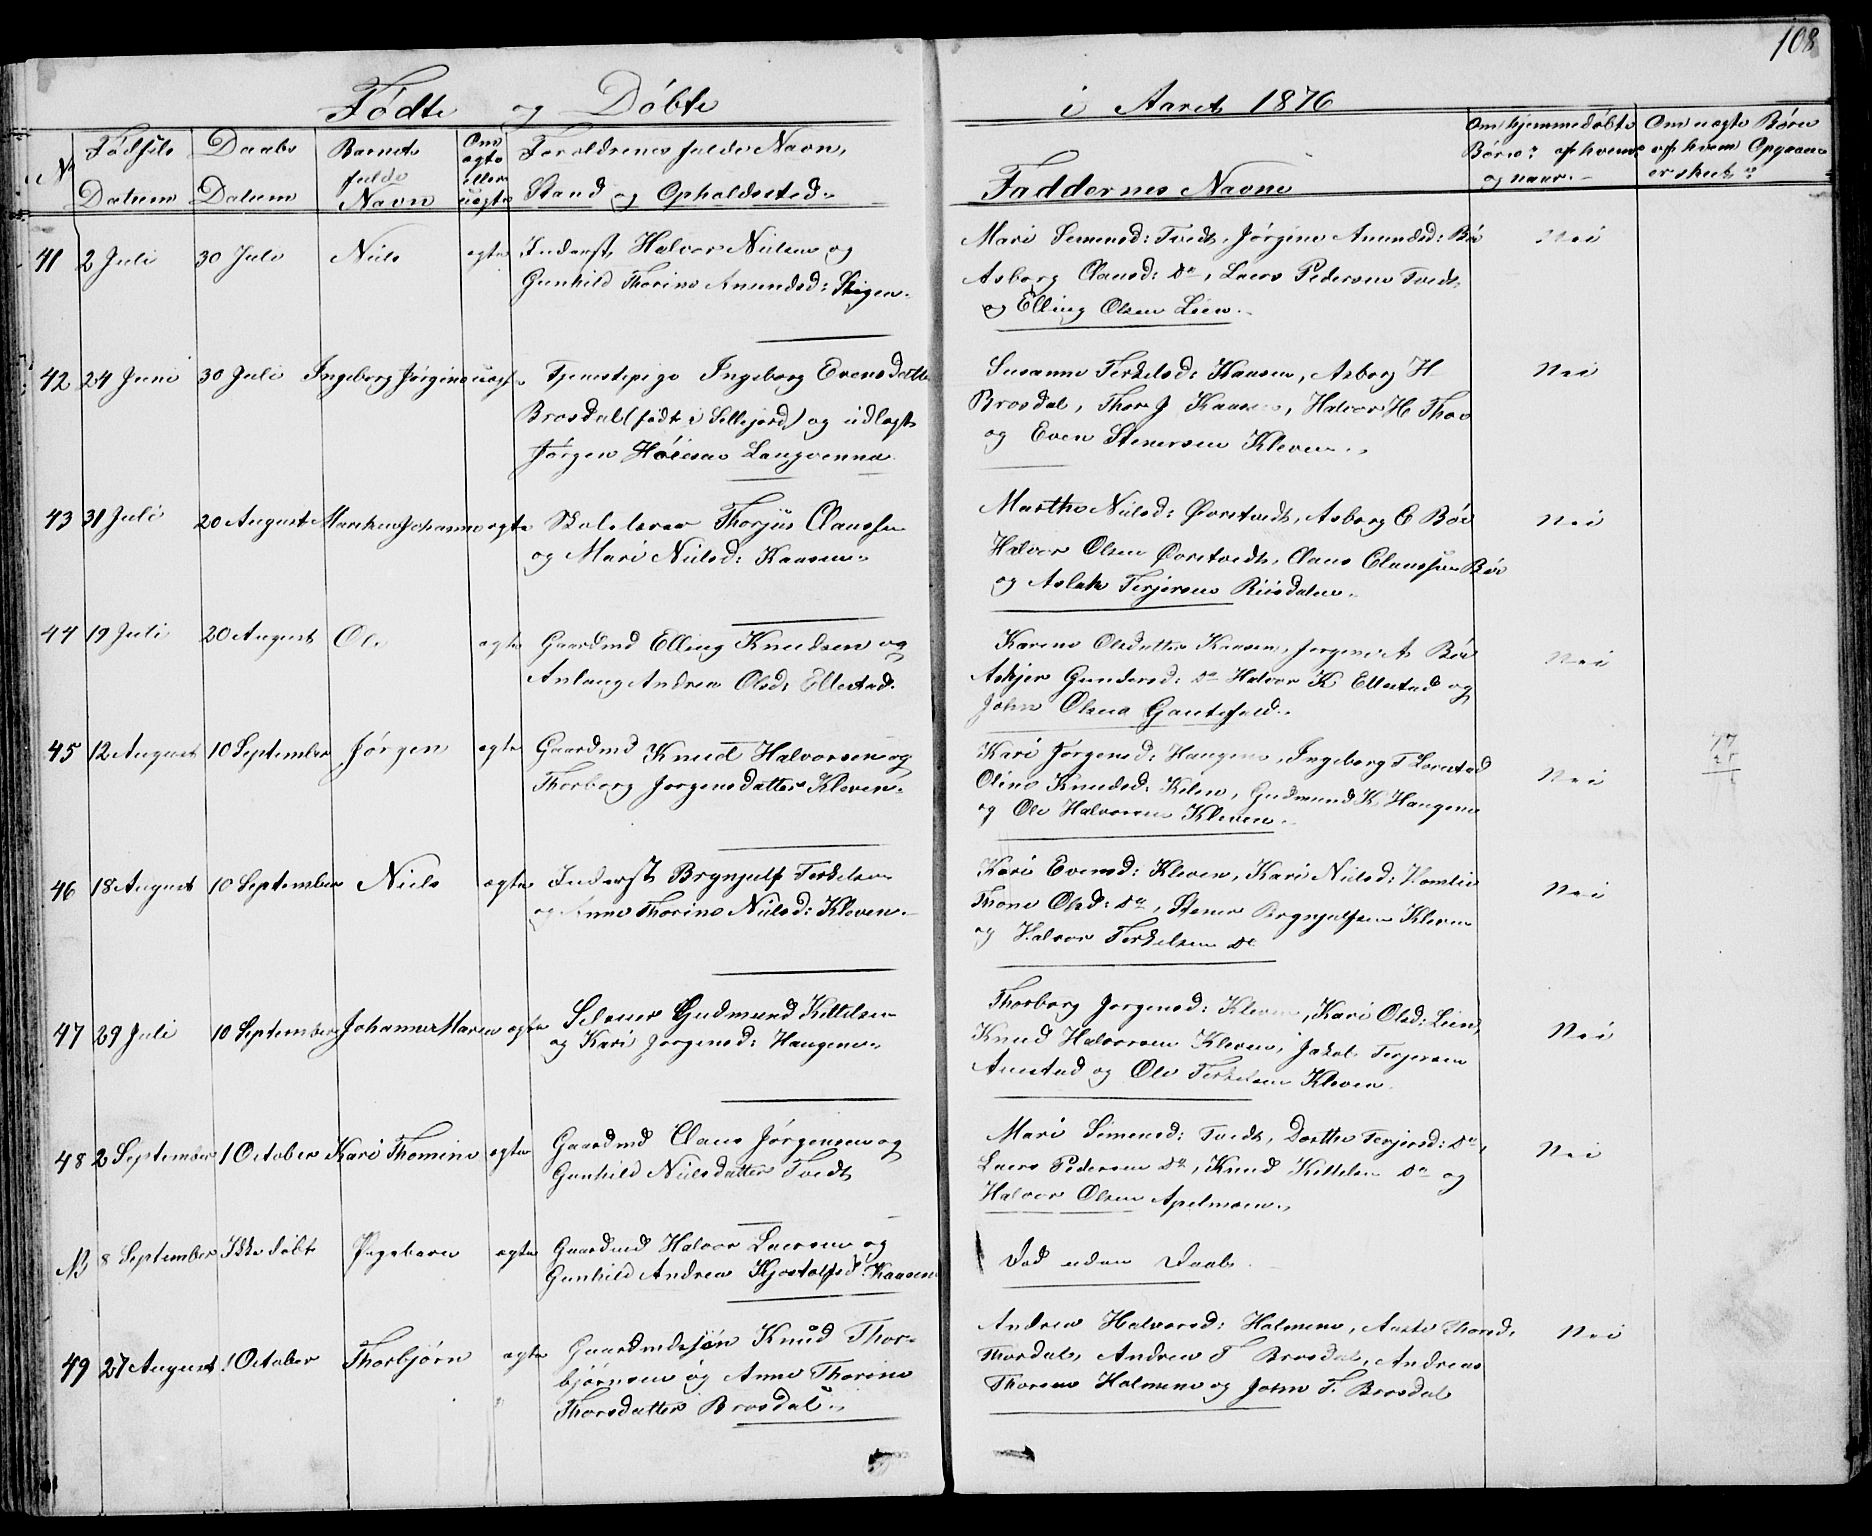 108
Fødte og Døbte i Aaret 1876
No
Fødsels Datum
Daabs Datum
Barnets fulde Navn
Om ægte eller uægte
Foreldrenes fulde Navn, Stand og Opholdssted.
Faddernes Navne
Om hjemmedøbte Børn? af hvem og naar.
Om uægte Børn af hvem Opgaven er skeet?
41 2 Juli 30 Juli Niels ægte Inderst Halvor Nielsen og
Gunhild Thorine Amundsd: Stigen.
Mari Simensd: Tvedt, Jørgine Amundsd: Bö
Asborg Clausd: Do, Laers Pedersen Tvedt,
og Elling Olsen Lien.
Nei
42 24 Juni 30 Juli Ingeborg Jørgine uægte Tjenestepige Ingeborg Evensdatter
Brosdal (født i Sillejord) og udlagt
Jørgen Høiesen Langvenna
Susanne Terkelsd: Kaasen, Asborg H
Brosdal, Thor J Kaasen, Halvor H Thoe
og Even Stenersen Kleven.
Nei
43 31 Juli 20 August Maren Johanne ægte Skolelærer Thorjus Claussen
og Mari Nielsd: Kaasen.
Marthe Nielsd: Øvretvedt, Asborg C Böe
Halvor Olsen Øvretvedt, Claus Claussen Böe
og Aslak Terjersen Riisdalen.
Nei
44 19 Juli 20 August Ole ægte Gaardmd Elling Knudsen og
Anlaug Andrea Olsd: Ellestad.
Karen Olsdatter Kaasen, Jørgine A Böe
Askjer Gundersd: Do Halvor K Ellestad og
John Olsen Gautefald.
Nei
45 12 August 10 September Jørgen ægte Gaardmd Knud Halvorsen og
Thorborg Jørgensdatter Kleven.
Kari Jørgensd: Haugene, Ingeborg T Lorestad
Oline Knudsd: Kilen, Gudmund K Haugene
og Ole Halvorsen Kleven.
Nei
46 18 August 10 September Niels ægte Inderst Brynjulf Terkelsen
og Anne Thorine Nielsd: Kleven.
Kari Evensd: Kleven, Kari Nielsd: Homlie
Thone Olsd: Do, Stener Brynjulfsen Kleven
og Halvor Terkelsen Do
Nei
47 29 July 10 September Johanne Maren ægte Selveier Gudmund Kittelsen
og Kari Jørgensd: Haugene.
Thorborg Jørgensd: Kleven, Kari Olsd: Lien,
Knud Halvorsen Kleven, Jakob Terjersen
Aaestad og Ole Terkelsen Kleven.
Nei
48 2 September 1 October Kari Thomine ægte Gaardmd Claus Jørgensen og
Gunhild Nielsdatter Tvedt
Mari Simensd: Tvedt, Dorthe Terjersd: Do,
Laers Pedersen Do, Knud Kittelsen Do og
Halvor Olsen Apelmoen.
Nei
NB 8 September Ikke døbt Pigebarn ægte Gaardmd Halvor Laersen og
Gunhild Andrea Kjostolfsd: Kaasene
Død uden Daab.
49 27 August 1 October Thorbjørn ægte Gaardmdssøn Knud Thor-
bjørnsen og Anne Thorine
Thorsdatter Brosdal.
Andrea Halvorsd: Holmene, Aaste Thorsd,
Thordal, Andrea T Brosdal, Andreas
Thorsen Holmene og John T. Brosdal
Nei